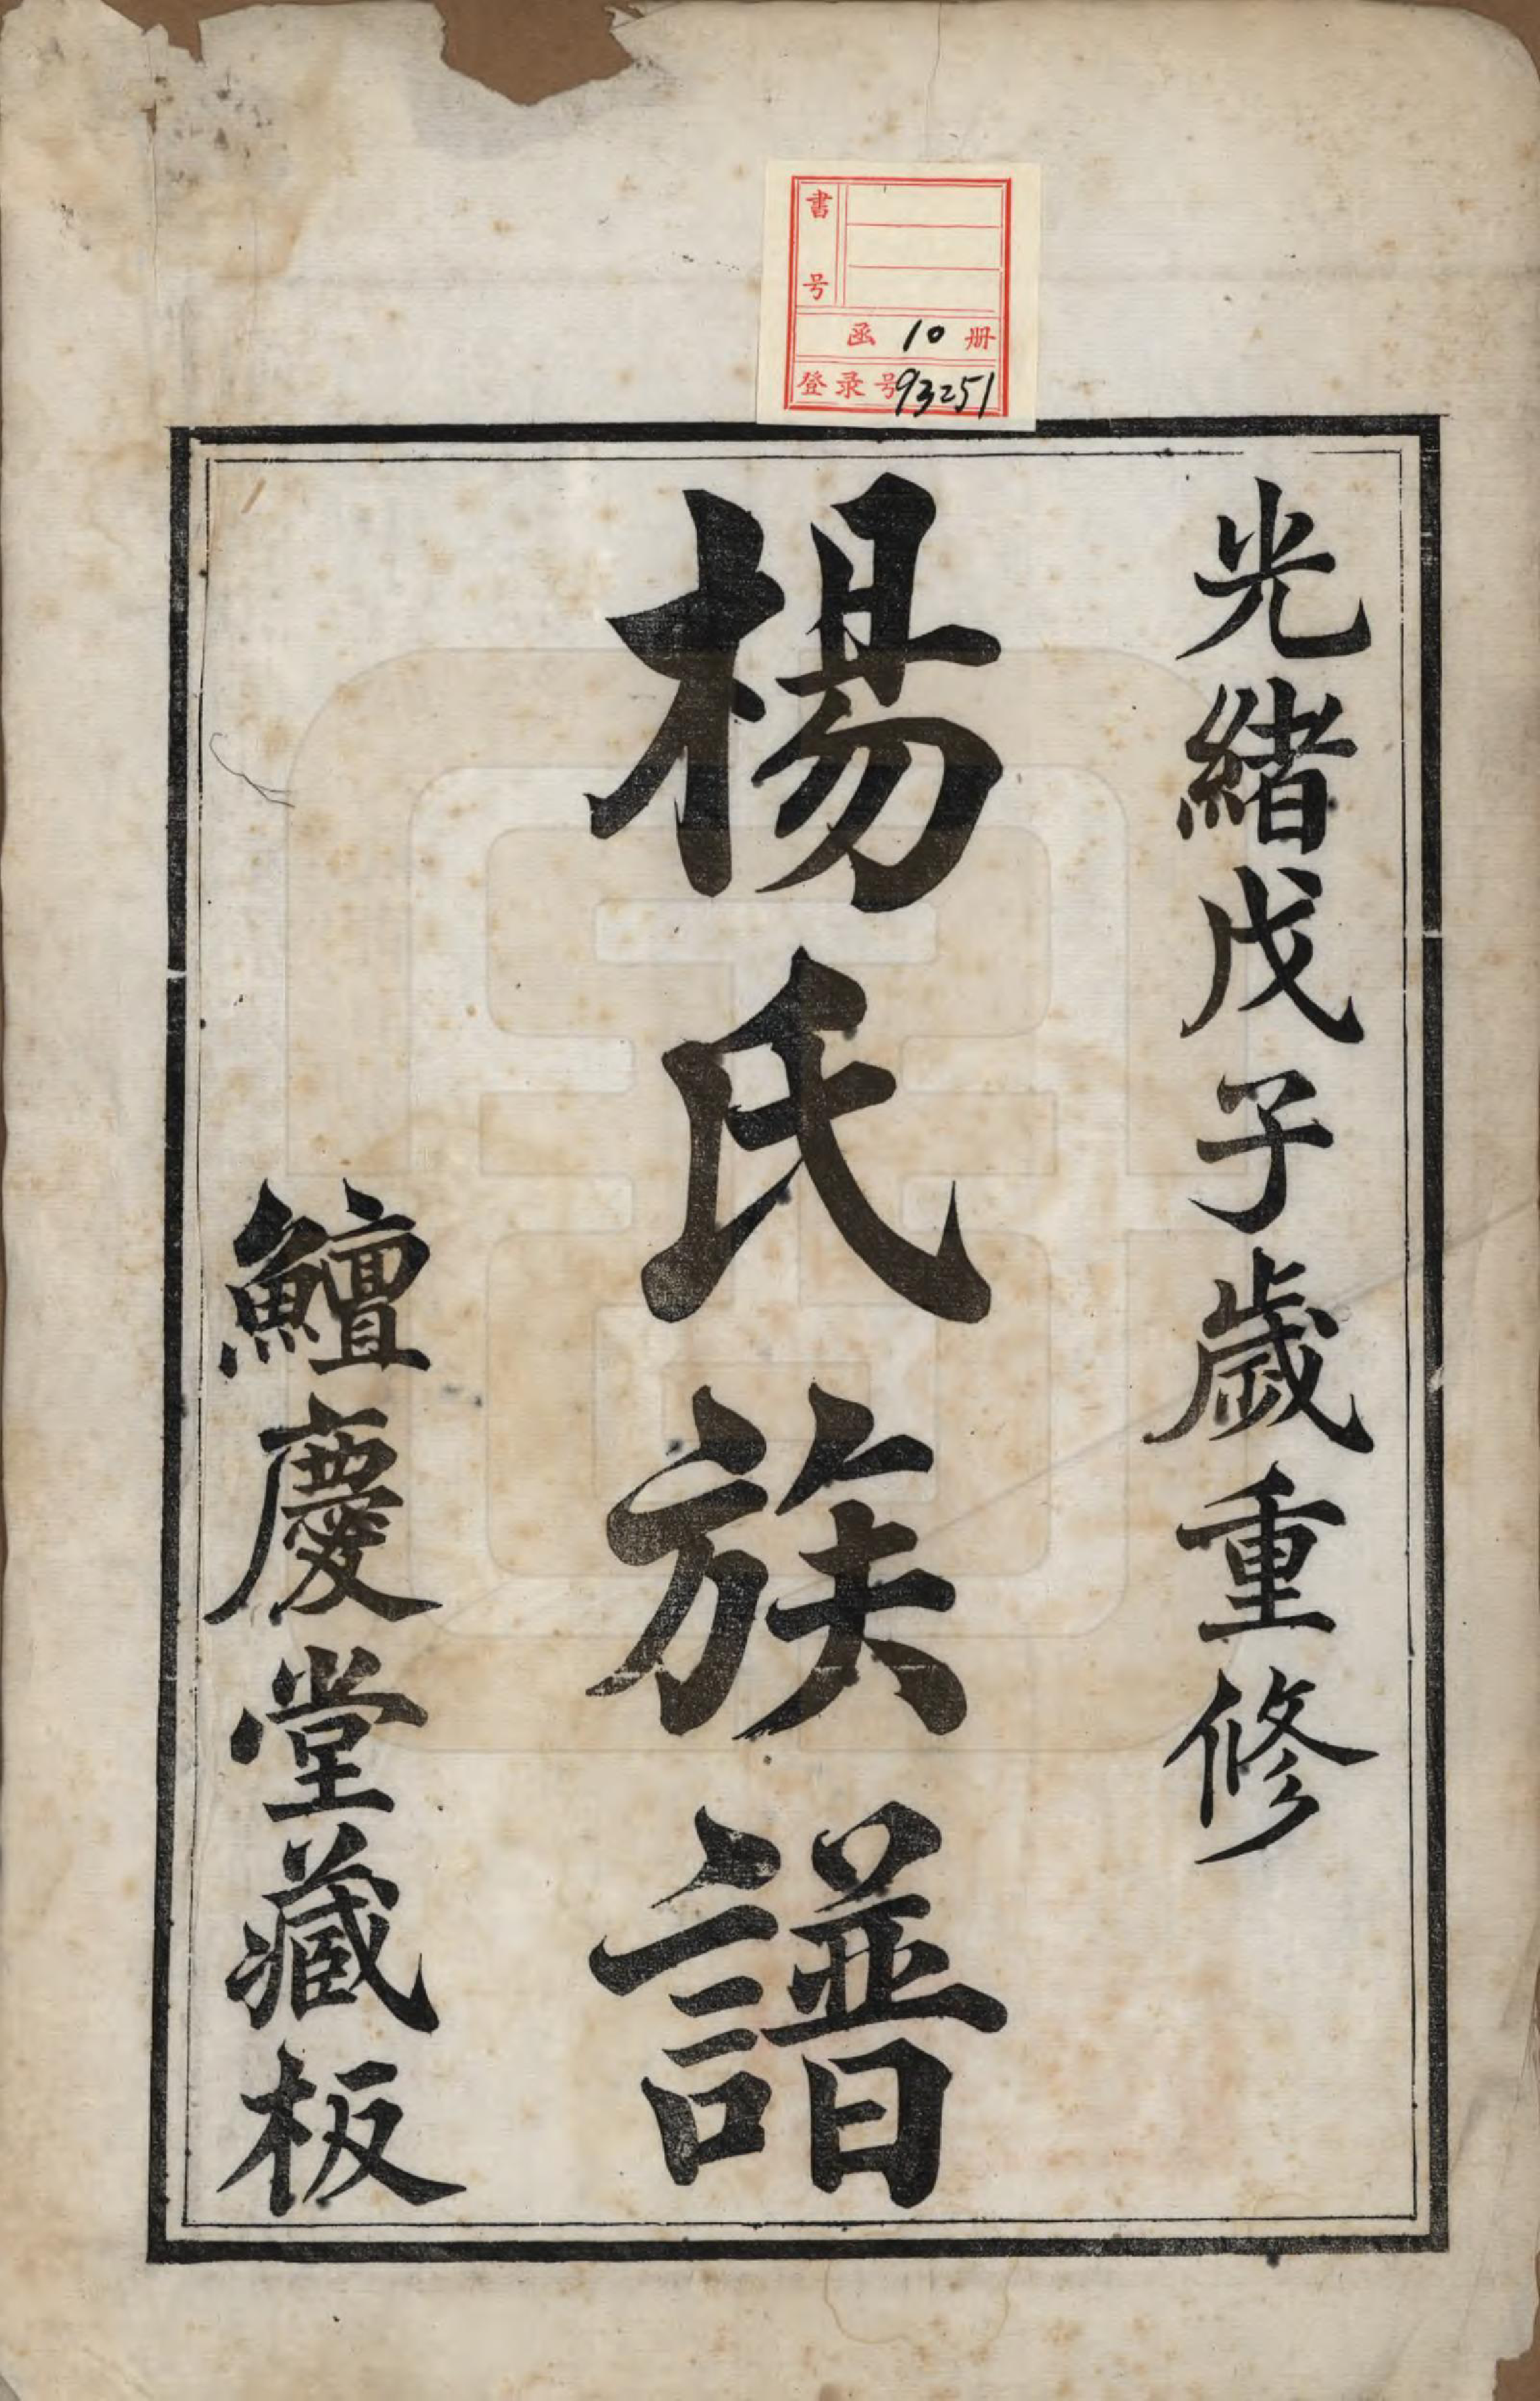 書号
函 10 册
登录号93251
光緒戊子歲重修
楊氏族譜
鱣慶堂藏板